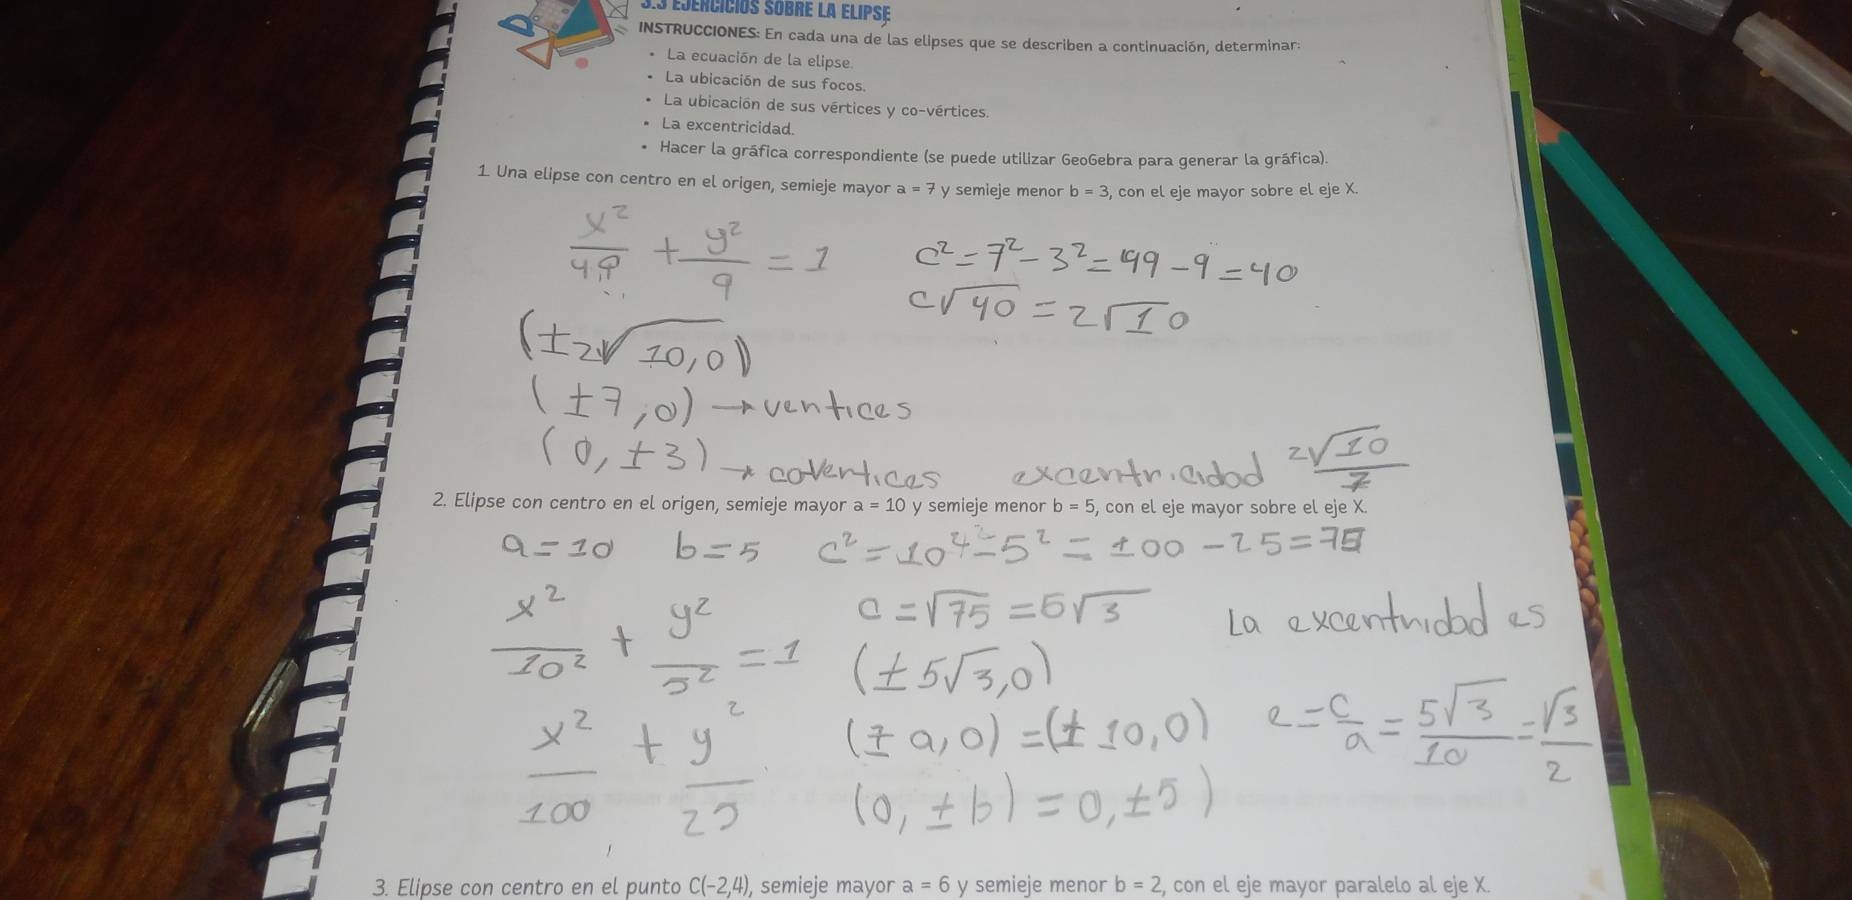 3.3 EJERCICIOS SOBRE LA ELIPSE
INSTRUCCIONES: En cada una de las elipses que se describen a continuación, determinar:
• La ecuación de la elipse.
• La ubicación de sus focos.
• La ubicación de sus vértices y co-vértices.
• La excentricidad.
• Hacer la gráfica correspondiente (se puede utilizar GeoGebra para generar la gráfica).
1. Una elipse con centro en el origen, semieje mayor a = 7 y semieje menor b = 3, con el eje mayor sobre el eje X.
x²/49 + y²/9 = 1
c² = 7² - 3² = 49 - 9 = 40
c√40 = 2√10
(±2√10,0)
(±7,0) → vertices
(0,±3) → covertices
excentricidad 2√10/7
2. Elipse con centro en el origen, semieje mayor a = 10 y semieje menor b = 5, con el eje mayor sobre el eje X.
a = 10 b = 5 c² = 10² - 5² = 100 - 25 = 75
x²/10² + y²/5² = 1
c = √75 = 5√3
(±5√3,0)
La excentridad es
x²/100 + y²/25
(±a,0) = (±10,0)
e = c/a = 5√3/10 = √3/2
(0,±b) = 0,±5)
3. Elipse con centro en el punto C(-2,4), semieje mayor a = 6 y semieje menor b = 2, con el eje mayor paralelo al eje X.